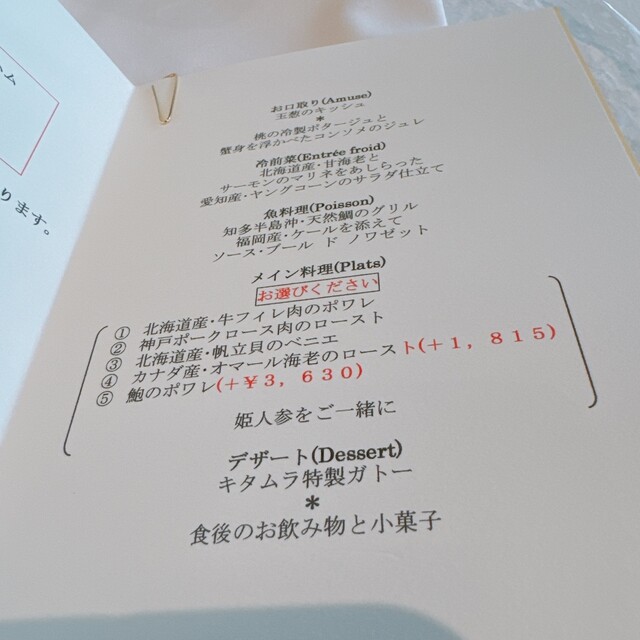 ム
ります。
お口取り(Amuse)
玉葱のキッシュ
*
桃の冷製ポタージュと
蟹身を浮かべたコンソメのジュレ
冷前菜(Entrée froid)
北海道産・甘海老と
サーモンのマリネをあしらった
愛知産・ヤングコーンのサラダ仕立て
魚料理(Poisson)
知多半島沖・天然鯛のグリル
福岡産・ケールを添えて
ソース・ブール ド ノワゼット
メイン料理(Plats)
お選びください
① 北海道産・牛フィレ肉のポワレ
② 神戸ポークロース肉のロースト
③ 北海道産・帆立貝のベニエ
④ カナダ産・オマール海老のロースト(+1,815)
⑤ 鮑のポワレ(+¥3,630)
姫人参をご一緒に
デザート(Dessert)
キタムラ特製ガトー
*
食後のお飲み物と小菓子